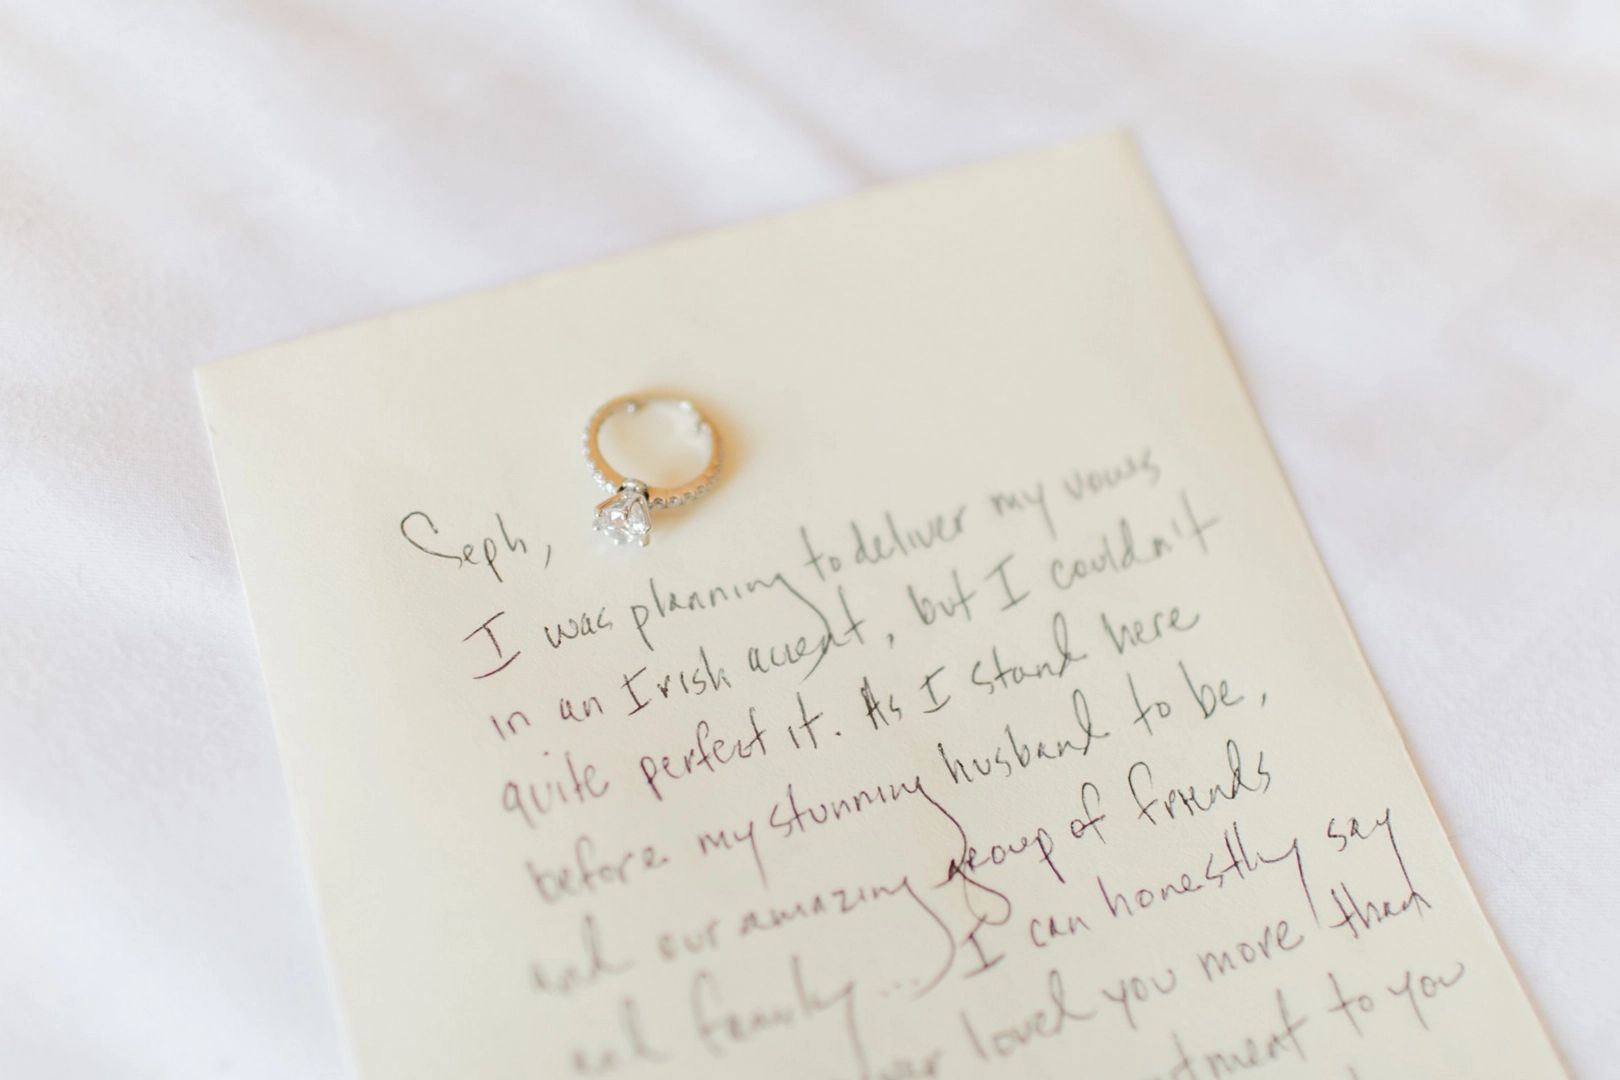 Seph,
I was planning to deliver my vows
in an Irish accent, but I couldn't
quite perfect it. As I stand here
before my stunning husband to be,
and our amazing group of friends
and family... I can honestly say
loved you more than
to you